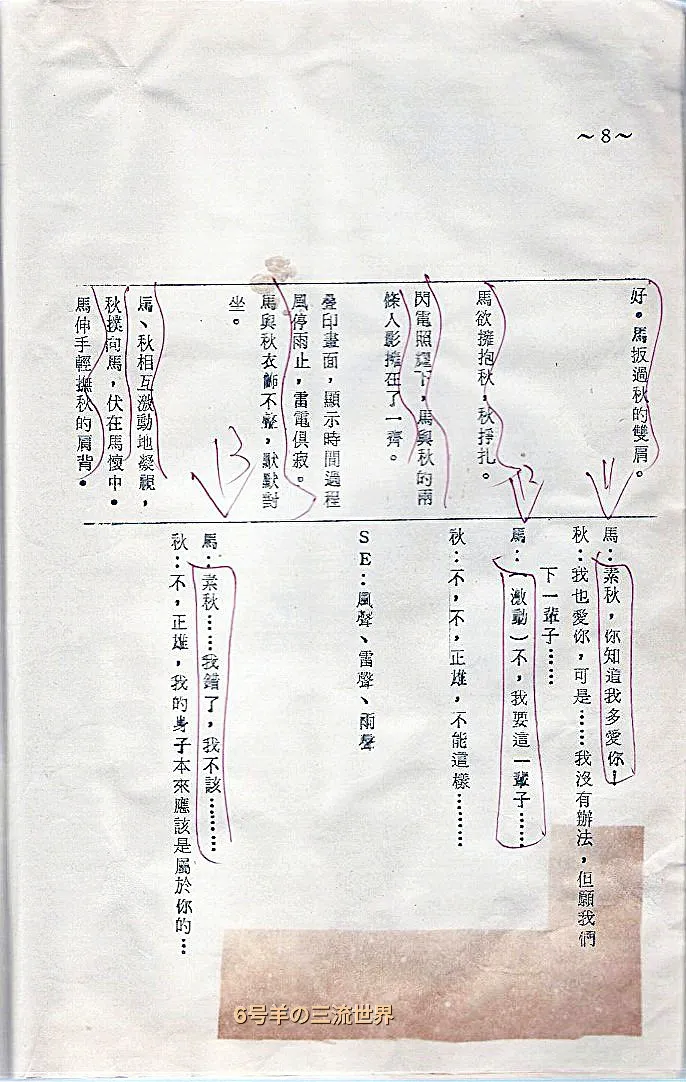 ~8~
好。馬扳過秋的雙肩。
馬欲擁抱秋，秋掙扎。
閃電照耀下，馬與秋的兩
條人影擁在了一齊。
疊印畫面，顯示時間過程
風停雨止，雷電俱寂。
馬與秋衣飾不整，默默對
坐。
馬、秋相互激動地凝視，
秋撲向馬，伏在馬懷中。
馬伸手輕撫秋的肩背。
11
馬：素秋，你知道我多愛你！
秋：我也愛你，可是……我沒有辦法，但願我們
下一輩子……
12
馬：（激動）不，我要這一輩子……
秋：不，不，正雄，不能這樣………
SE：風聲、雷聲、雨聲
13
馬：素秋……我錯了，我不該………
秋：不，正雄，我的身子本來應該是屬於你的…
6号羊の三流世界